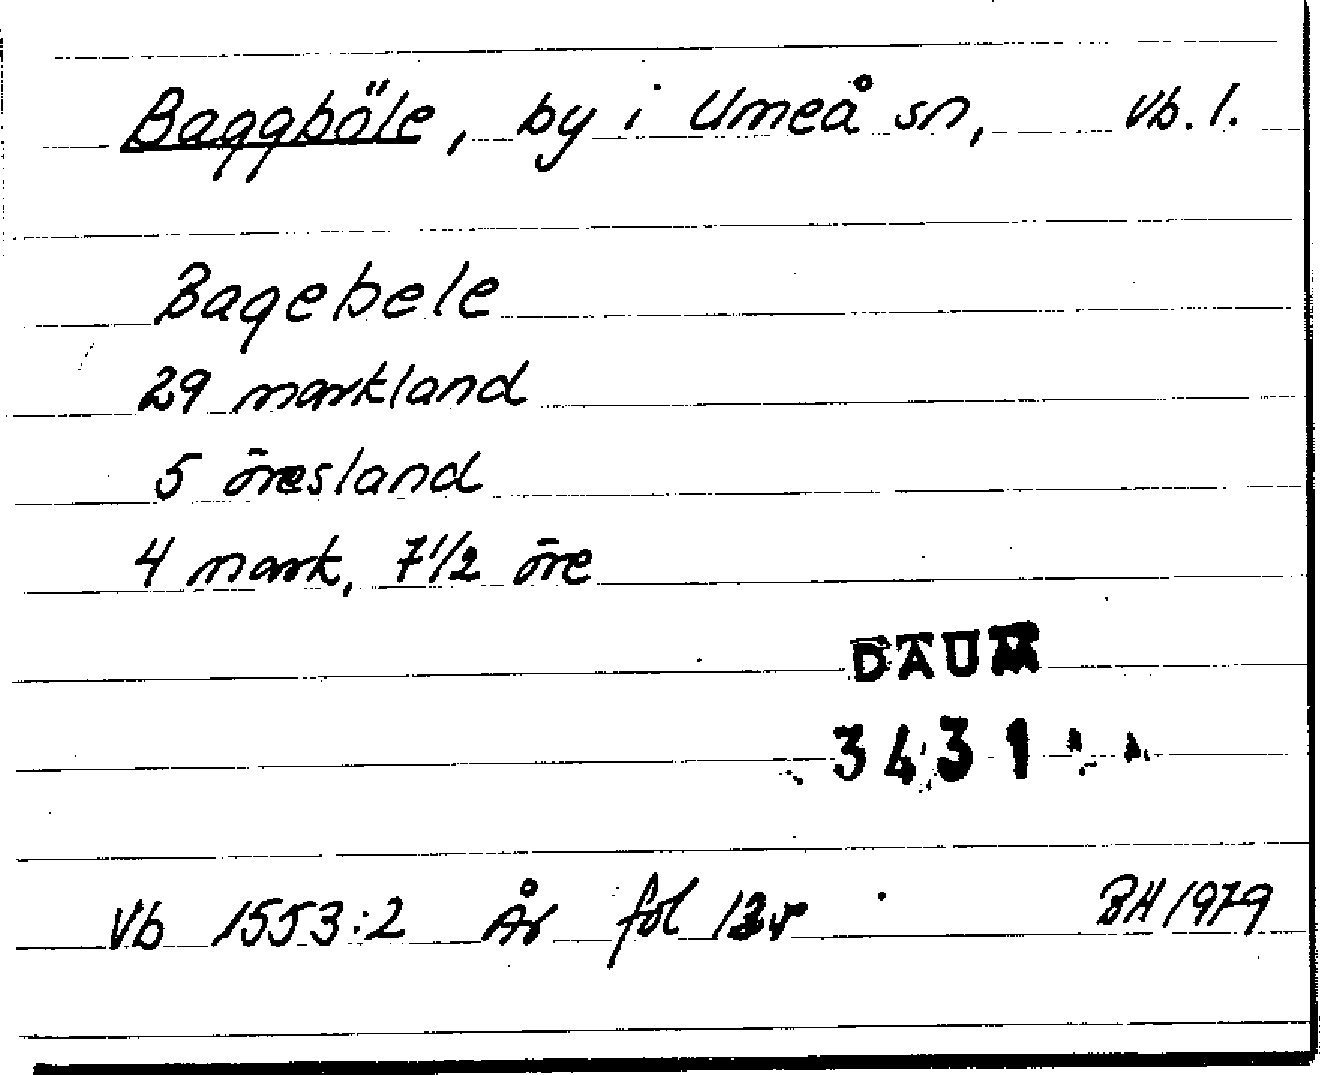 Baggböle, by i Umeå sn, Vb. l.
Bagebele
29 markland
5 öresland
4 mark, 7 1/2 öre
DAUM
3431
Vb 1553:2 År fol 13v BH 1979